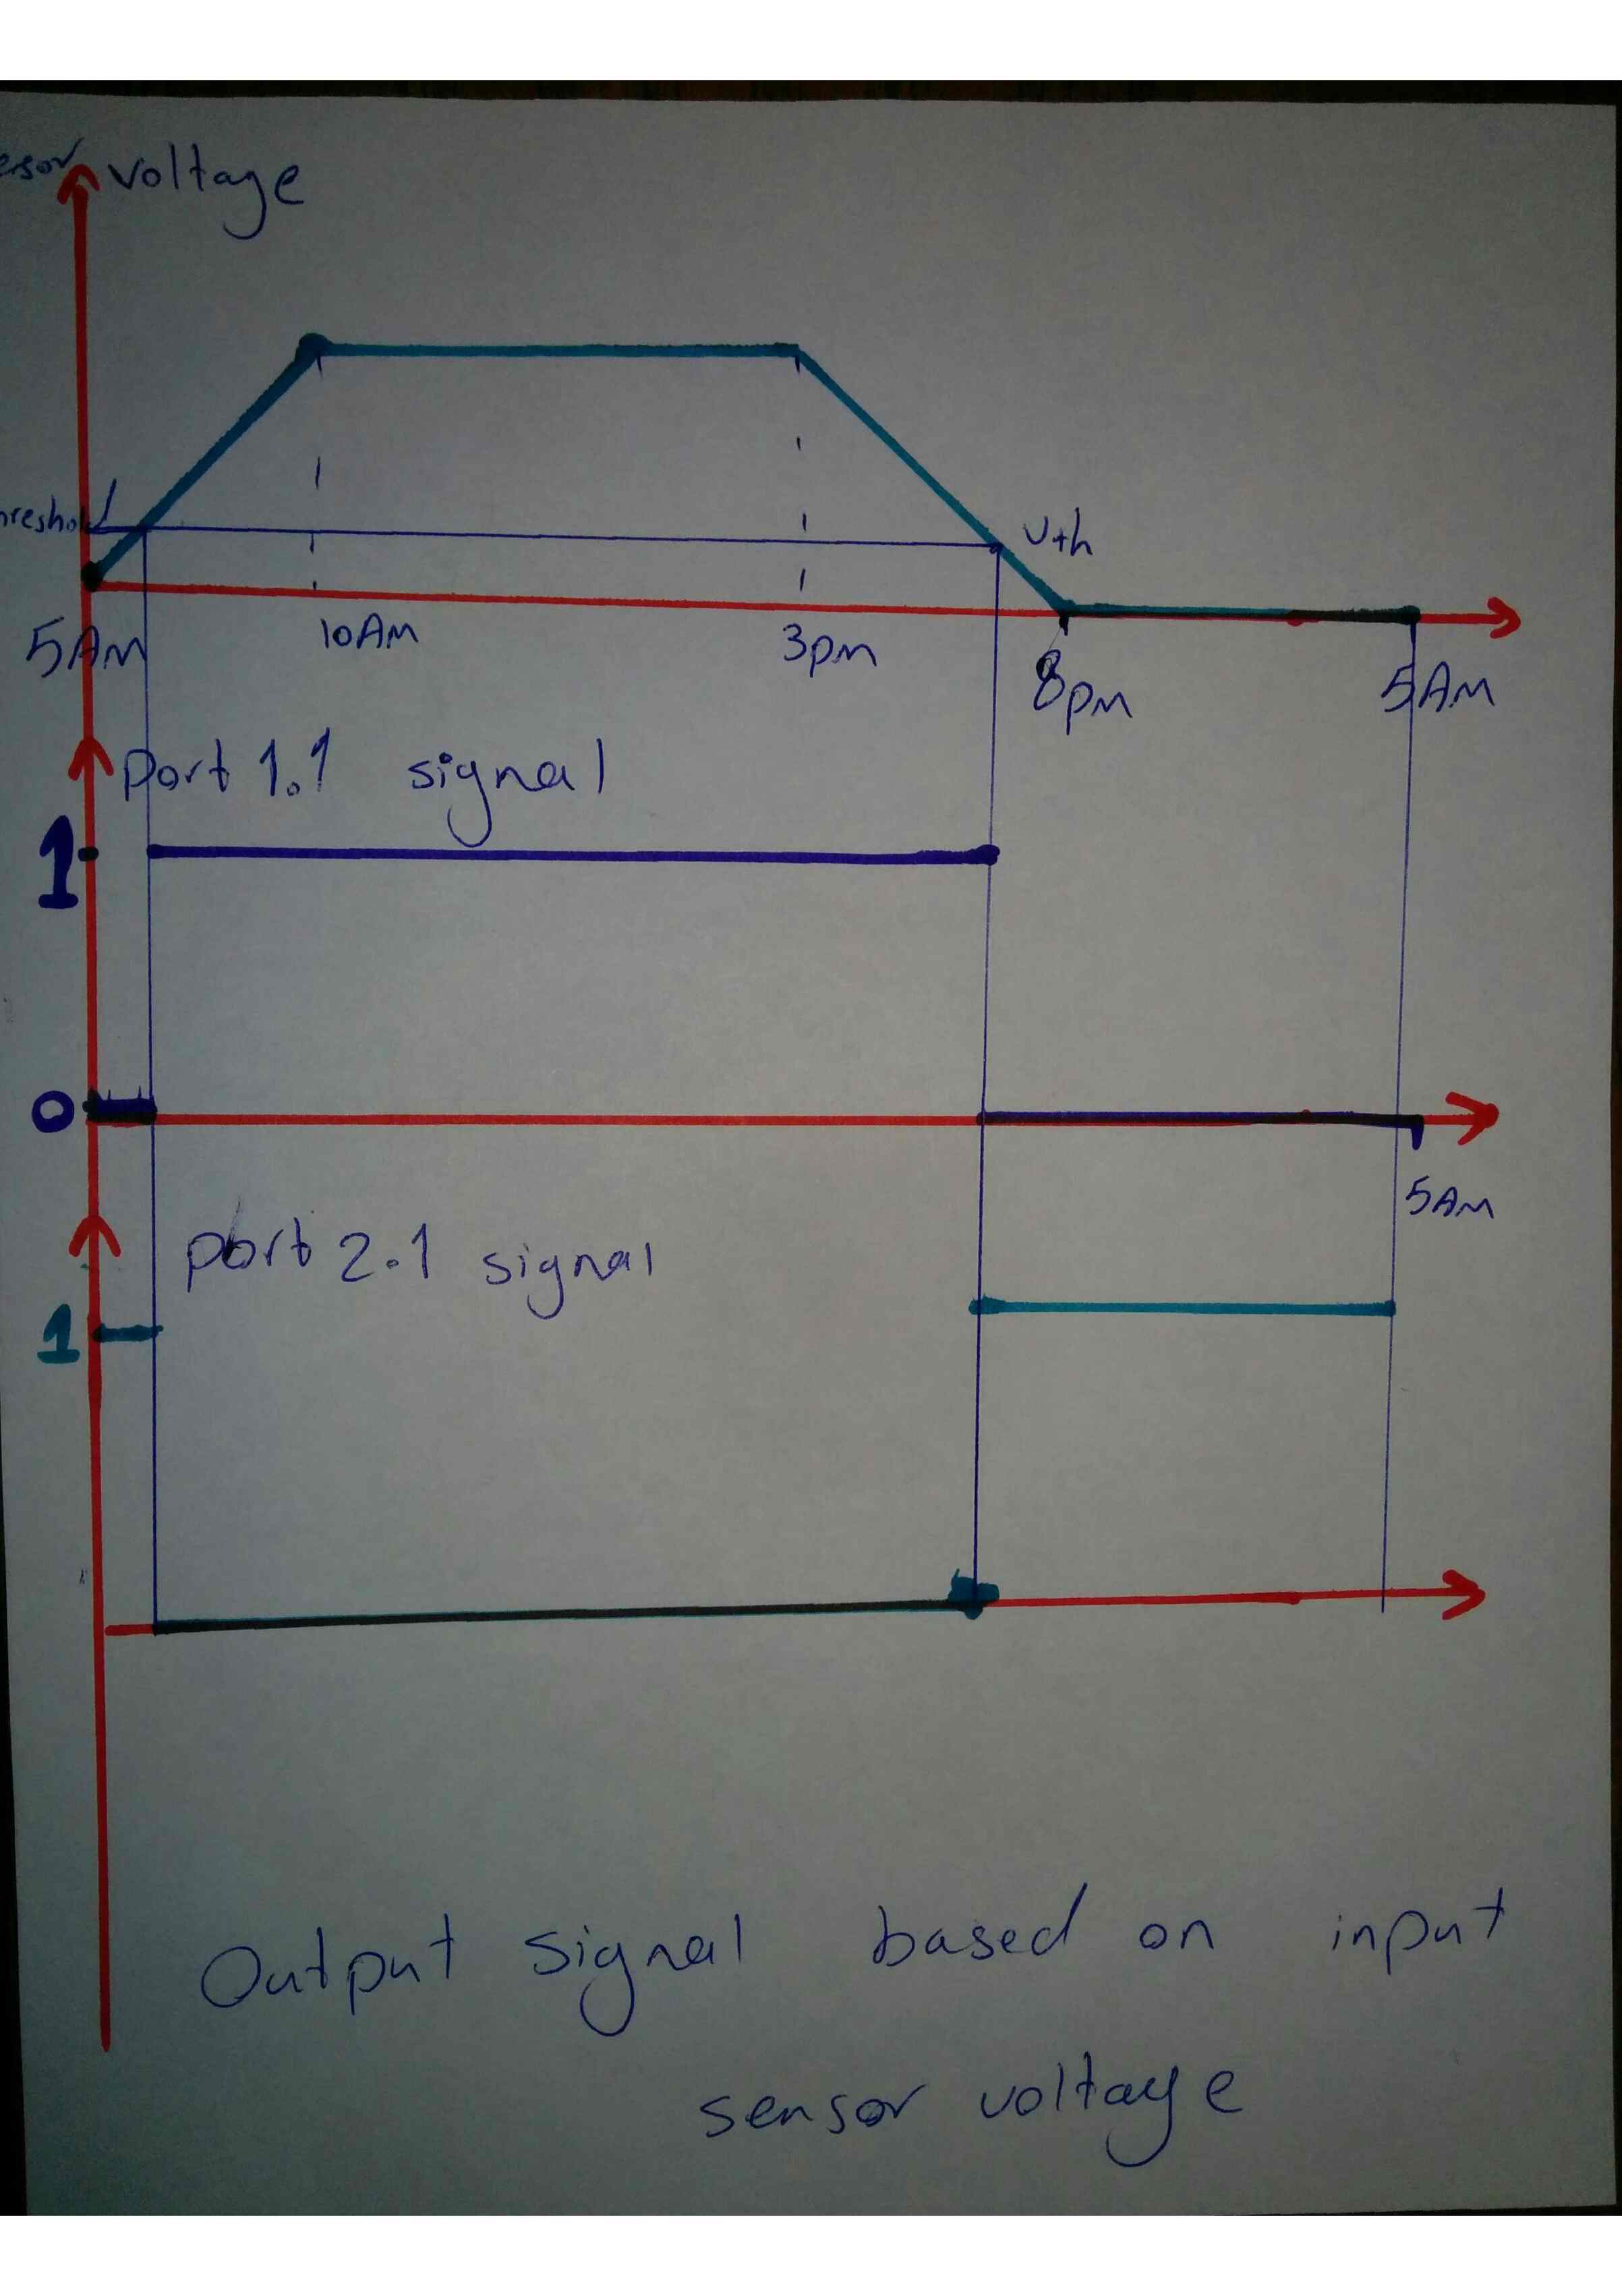 ensor voltage
hreshol
Vth
5AM
10AM
3pm
8pm
5AM
port 1.1 signal
1
0
5AM
port 2.1 signal
1
Output signal based on input
sensor voltage